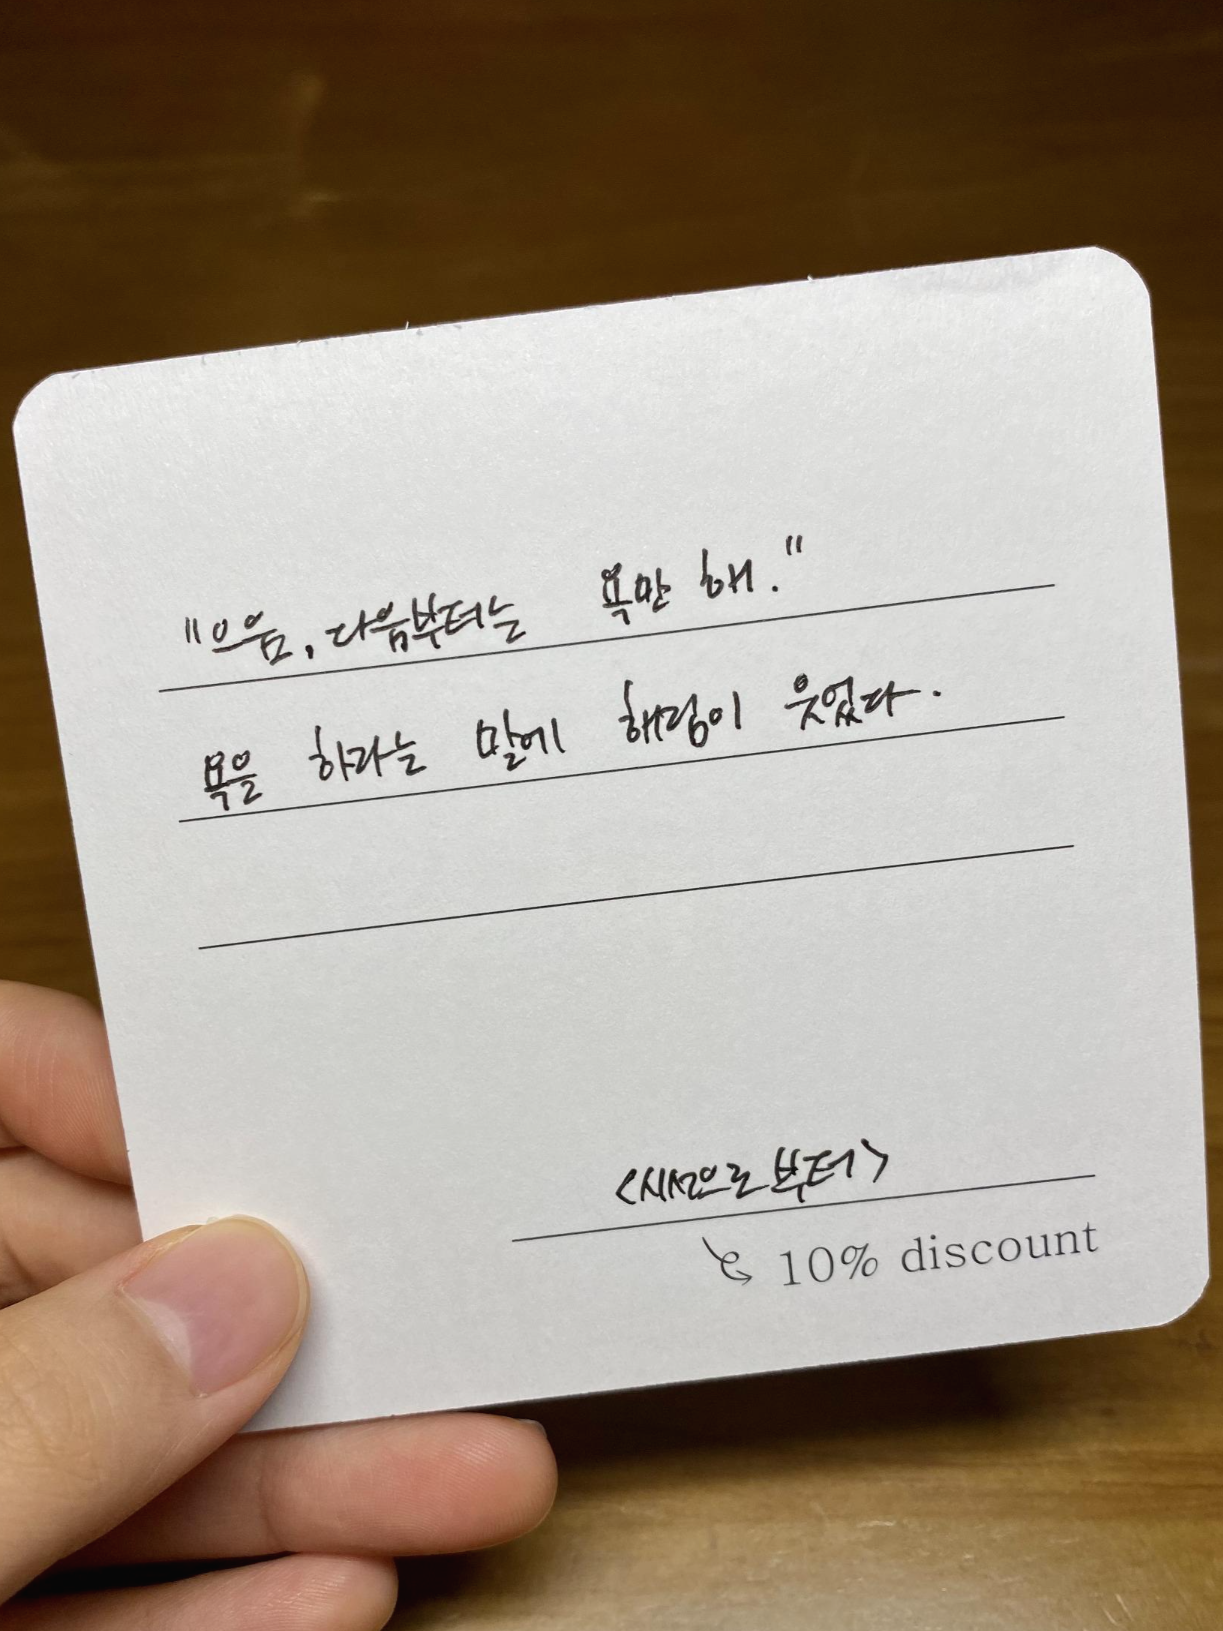 "으음, 다음부터는 욕만 해."
욕을 하라는 말에 해림이 웃었다.
<시선으로부터>
10% discount